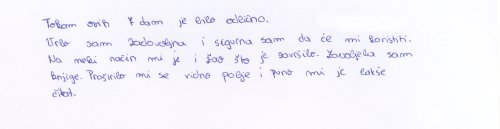 Tokom ovih 7 dana je bilo odlično.
Vrlo sam zadovoljna i sigurna sam da će mi koristiti.
Na neki način mi je i žao što je završilo. Zavoljela sam
knjige. Proširilo mi se vidno polje i puno mi je lakše
čitat.